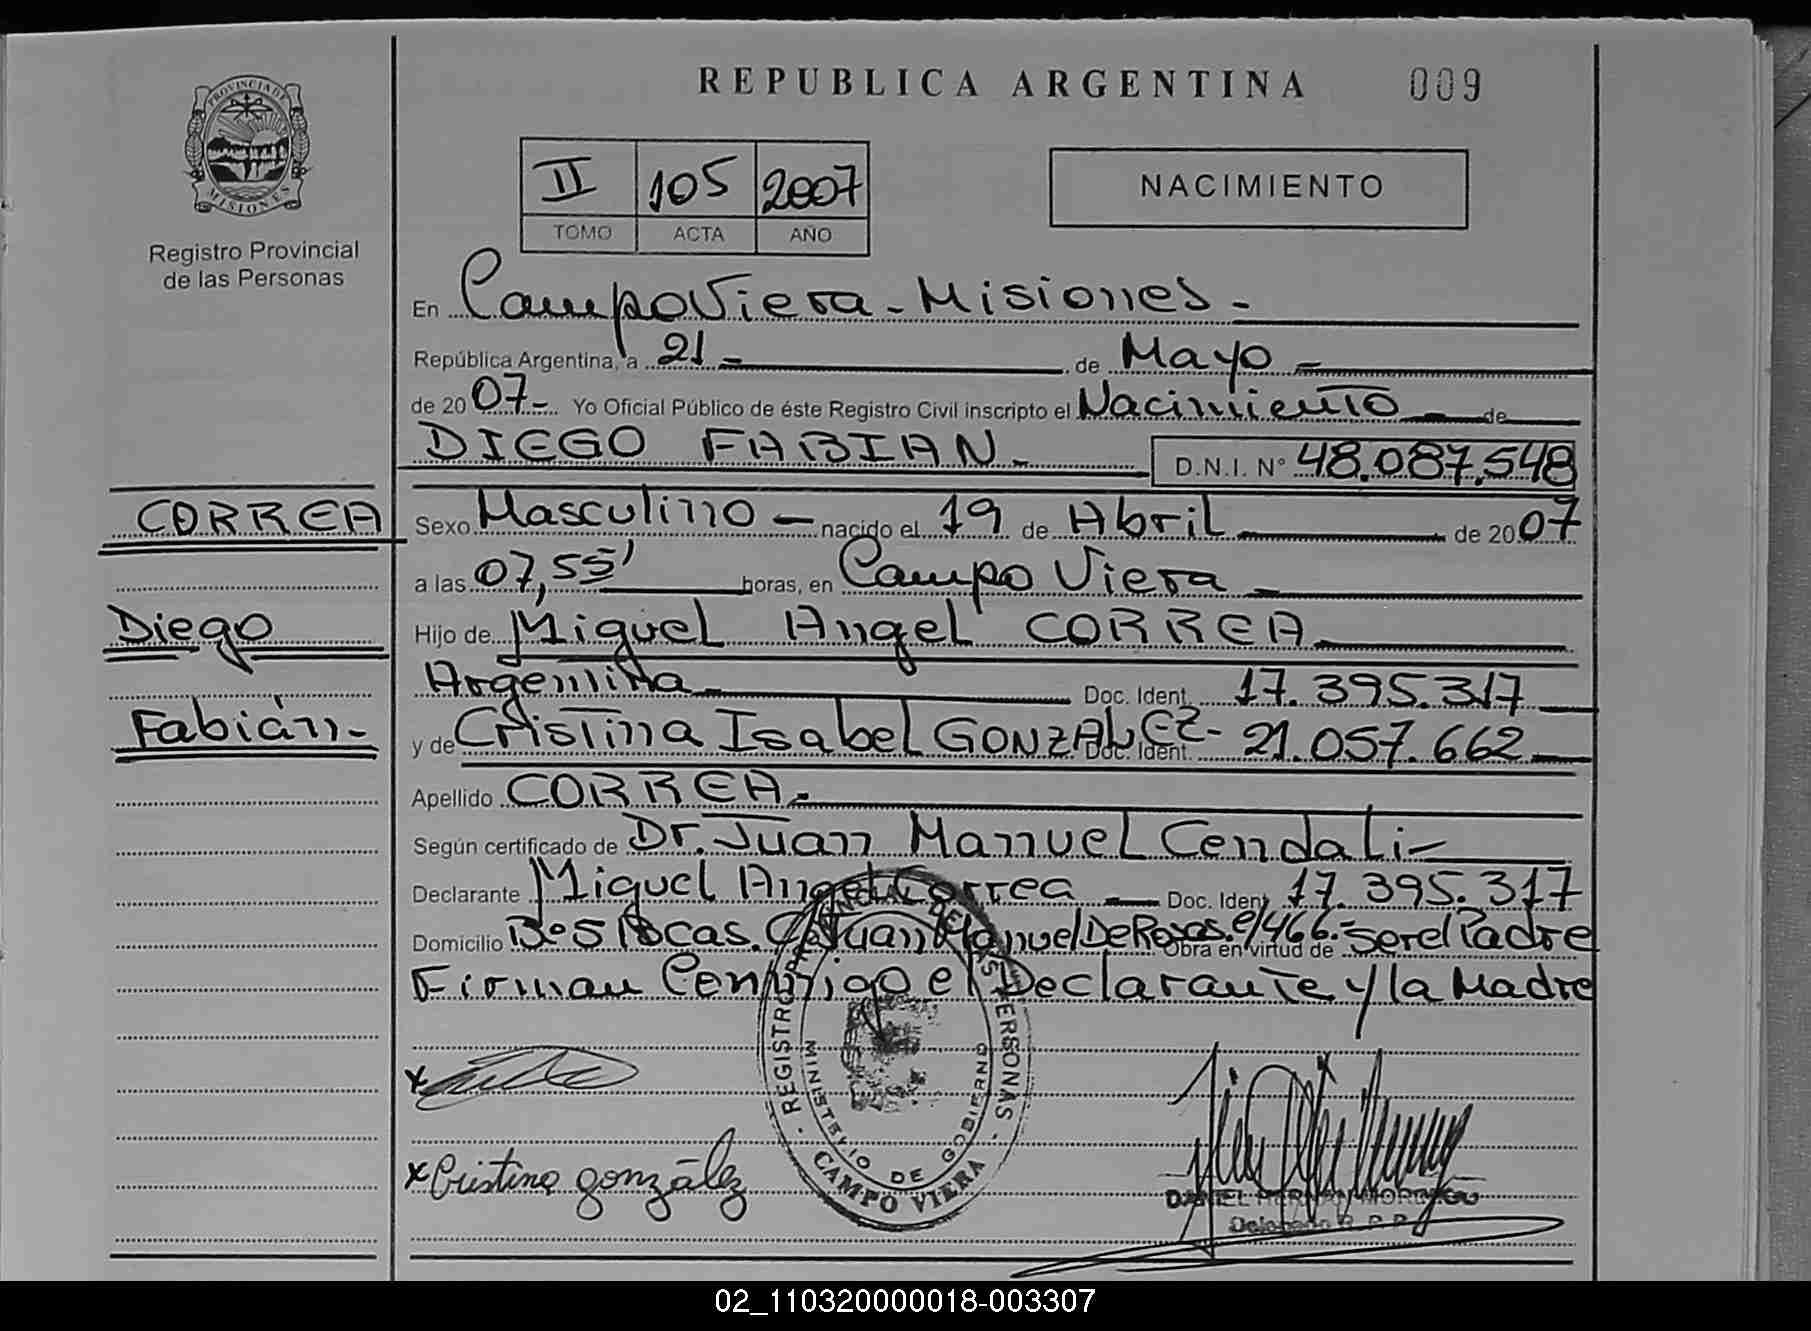 REPUBLICA ARGENTINA 009
PROVINCIA DE MISIONES
Registro Provincial
de las Personas
II 105 2007
TOMO ACTA AÑO
NACIMIENTO
En Campo Viera - Misiones -
República Argentina, a 21 - de Mayo -
de 20 07 - Yo Oficial Público de éste Registro Civil inscripto el Nacimiento - de
DIEGO FABIAN - D.N.I. N° 48.087.548
CORREA
Diego
Fabián -
Sexo Masculino - nacido el 19 de Abril de 20 07
a las 07,55' horas, en Campo Viera -
Hijo de Miguel Angel CORREA
Argentina - Doc. Ident. 17.395.317
y de Cristina Isabel GONZALEZ - Doc. Ident. 21.057.662
Apellido CORREA -
Según certificado de Dr. Juan Manuel Cendali -
Declarante Miguel Angel Correa - Doc. Ident. 17.395.317
Domicilio B° 518 cas. Juan Manuel De Rosas. 466 - Obra en virtud de ser el Padre
Firman Conmigo el Declarante y la Madre
REGISTRO PROVINCIAL DE LAS PERSONAS
MINISTERIO DE GOBIERNO
CAMPO VIERA
x
x Cristina González
DANIEL
Delegado R.P.P.
02_110320000018-003307